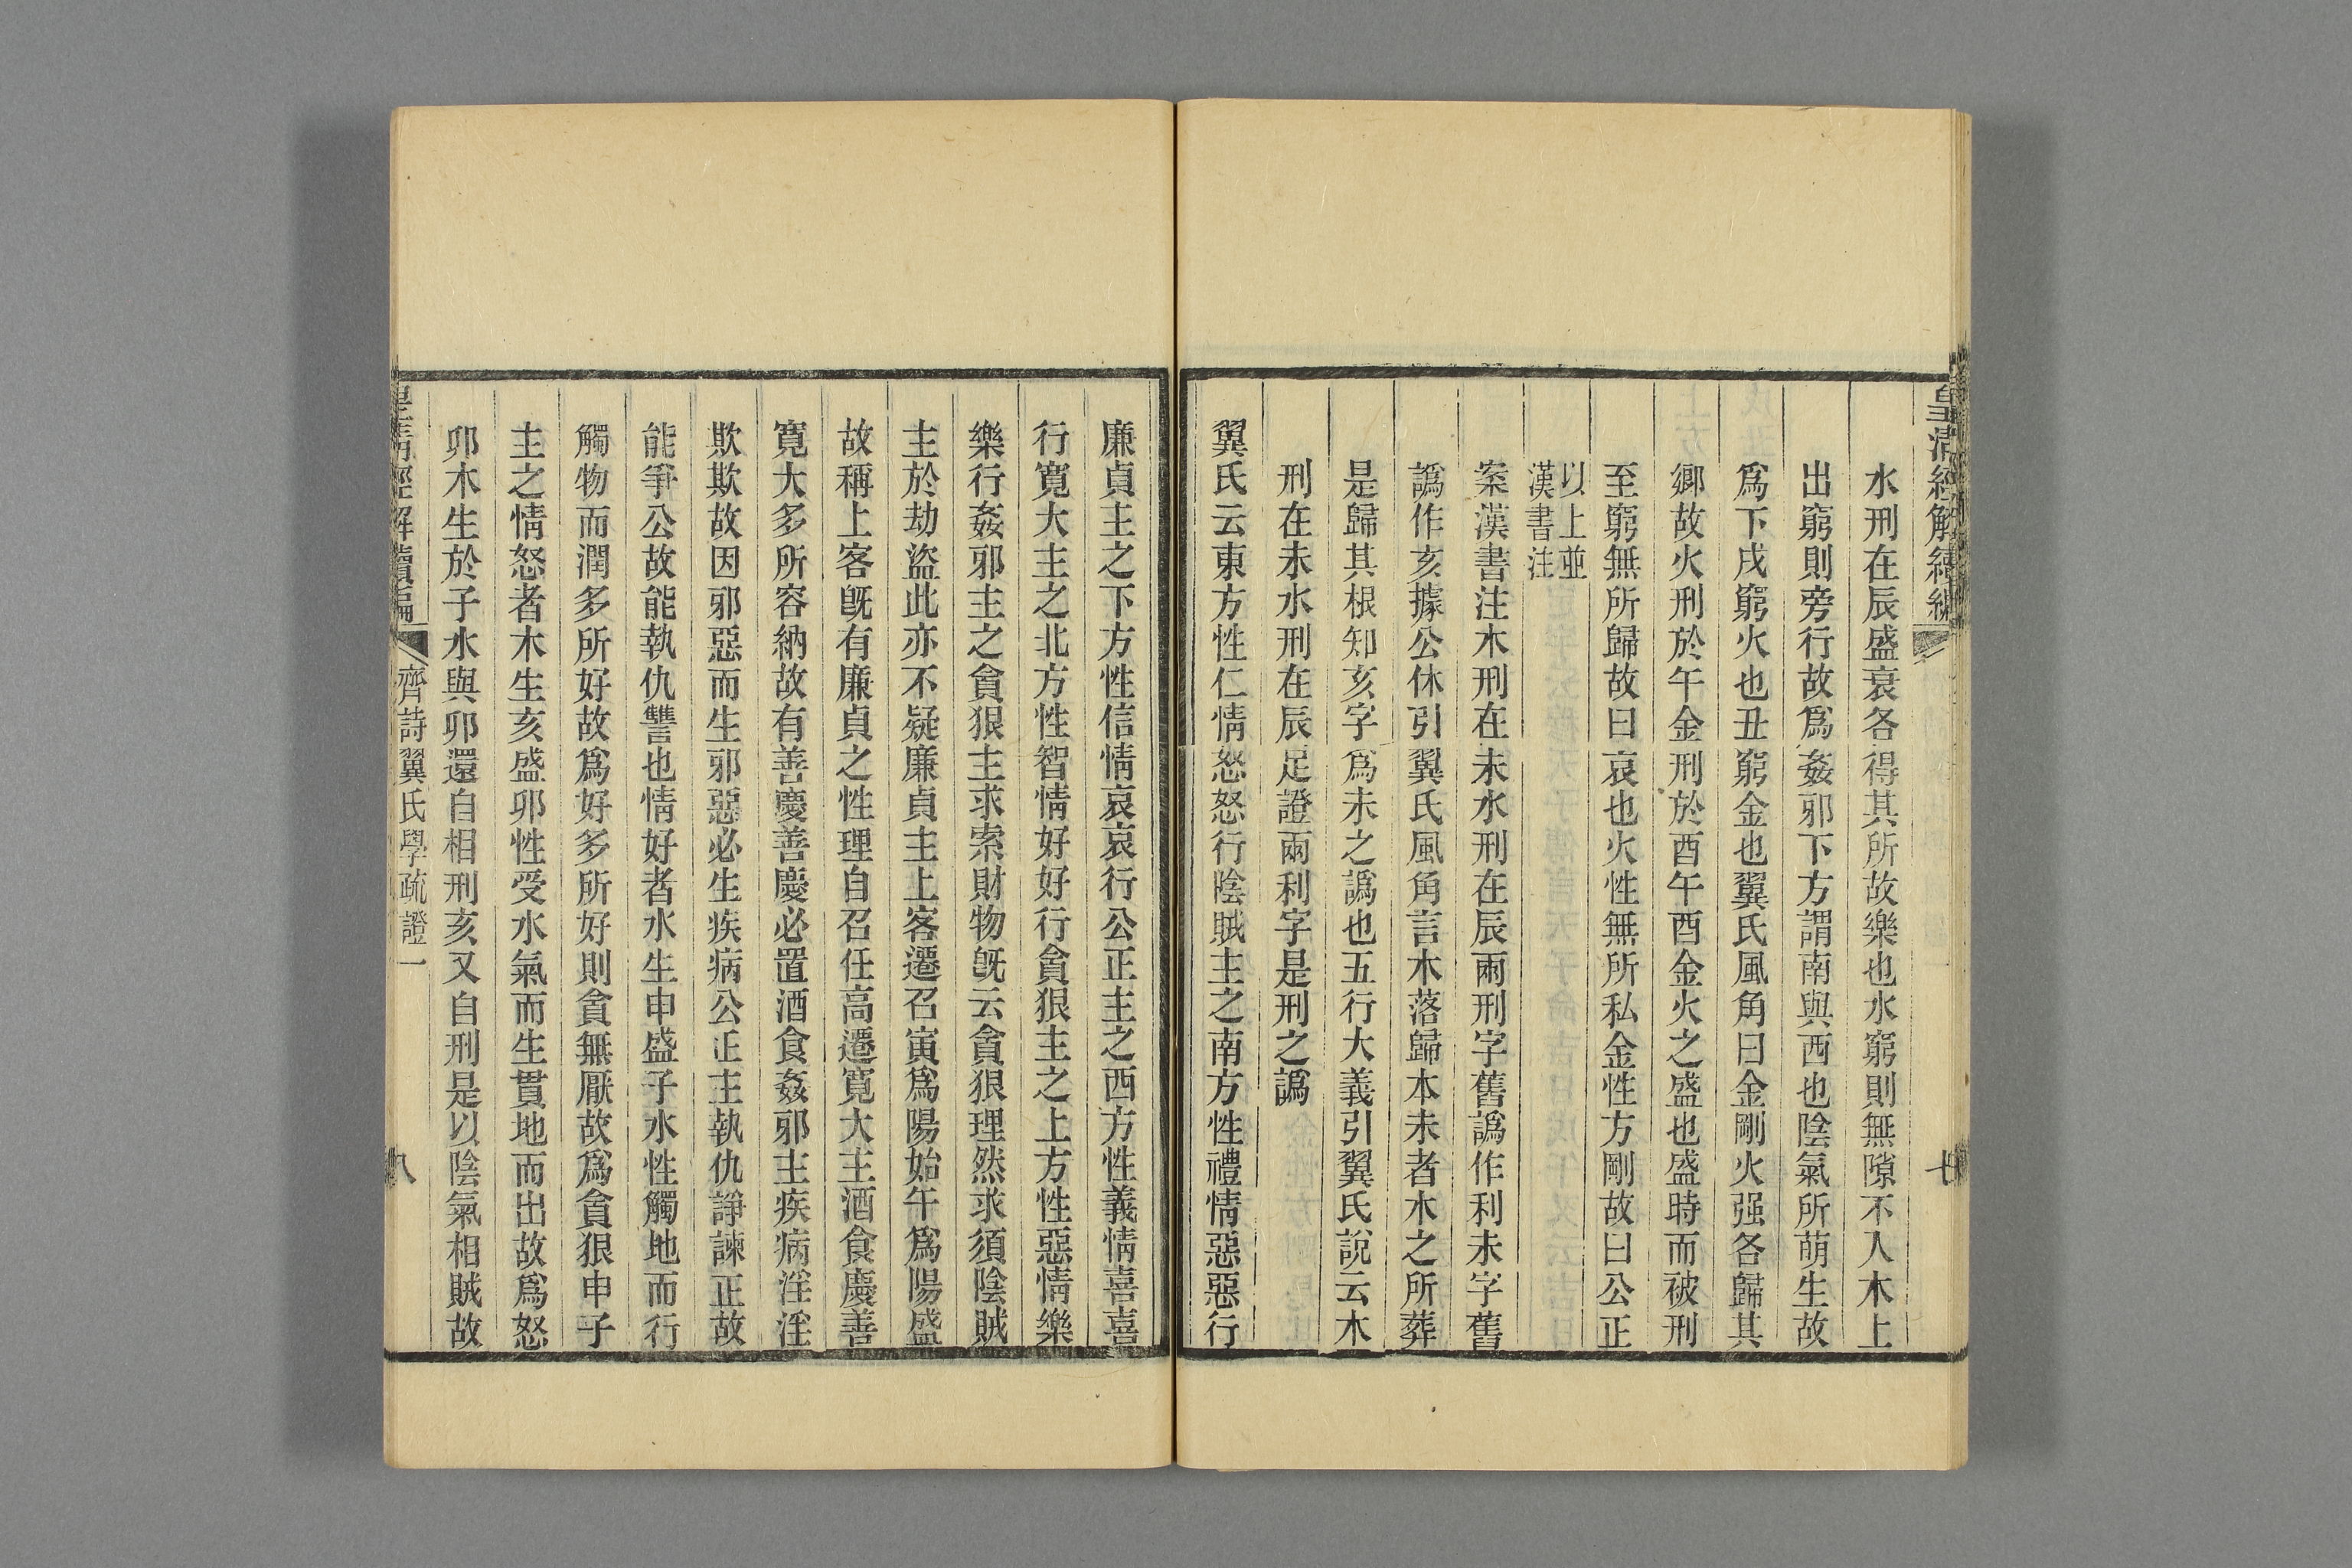 皇清經解續編
七
水刑在辰盛衰各得其所故樂也水窮則無隙不入木上
出窮則旁行故爲姦邪下方謂南與西也陰氣所萌生故
爲下戌窮火也丑窮金也翼氏風角曰金剛火强各歸其
鄉故火刑於午金刑於酉午酉金火之盛也盛時而被刑
至窮無所歸故曰哀也火性無所私金性方剛故曰公正
以上並
漢書注
案漢書注木刑在未水刑在辰兩刑字舊譌作利未字舊
譌作亥據公休引翼氏風角言木落歸本未者木之所葬
是歸其根知亥字爲未之譌也五行大義引翼氏說云木
刑在未水刑在辰足證兩利字是刑之譌
翼氏云東方性仁情怒怒行陰賊主之南方性禮情惡惡行
廉貞主之下方性信情哀哀行公正主之西方性義情喜喜
行寬大主之北方性智情好好行貪狠主之上方性惡情樂
樂行姦邪主之貪狠主求索財物旣云貪狠理然求須陰賊
主於劫盜此亦不疑廉貞主上客遷召寅爲陽始午爲陽盛
故稱上客旣有廉貞之性理自召任高遷寬大主酒食慶善
寬大多所容納故有善慶善慶必置酒食姦邪主疾病淫淫
欺欺故因邪惡而生邪惡必生疾病公正主執仇諍諫正故
能爭公故能執仇讐也情好者水生申盛子水性觸地而行
觸物而潤多所好故爲好多所好則貪無厭故爲貪狠申子
主之情怒者木生亥盛卯性受水氣而生貫地而出故爲怒
卯木生於子水與卯還自相刑亥又自刑是以陰氣相賊故
皇清經解續編
齊詩翼氏學疏證一
八